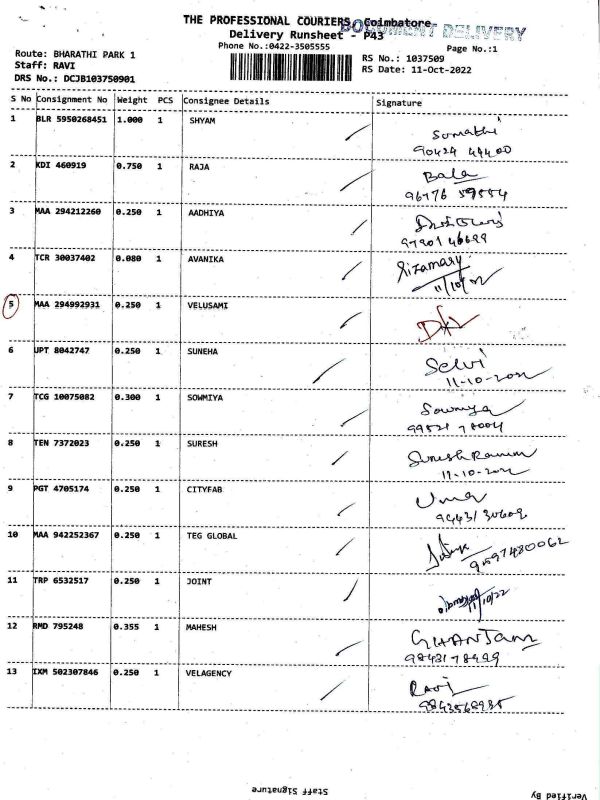 THE PROFESSIONAL COURIERS, Coimbatore
DOCUMENT DELIVERY
Delivery Runsheet - P43
Phone No.:0422-3505555
Page No.:1
Route: BHARATHI PARK 1
RS No.: 1037509
Staff: RAVI
RS Date: 11-Oct-2022
DRS No.: DCJB103750901
S No Consignment No Weight PCS Consignee Details Signature
1 BLR 5950268451 1.000 1 SHYAM Sumathi
90424 44400
2 KDI 460919 0.750 1 RAJA Bala
96776 59884
3 MAA 294212260 0.250 1 AADHIYA
97901 46699
4 TCR 30037402 0.080 1 AVANIKA
11/10/22
5 MAA 294992931 0.250 1 VELUSAMI
6 UPT 8042747 0.250 1 SUNEHA Selvi
11-10-2022
7 TCG 10075082 0.300 1 SOWMIYA Sowmya
8 TEN 7372023 0.250 1 SURESH
11-10-2022
9 PGT 4705174 0.250 1 CITYFAB Uma
10 MAA 942252367 0.250 1 TEG GLOBAL
11 TRP 6532517 0.250 1 JOINT
11/10/22
12 RMD 795248 0.355 1 MAHESH
13 IXM 502307846 0.250 1 VELAGENCY Ravi
Staff Signature
Verified By